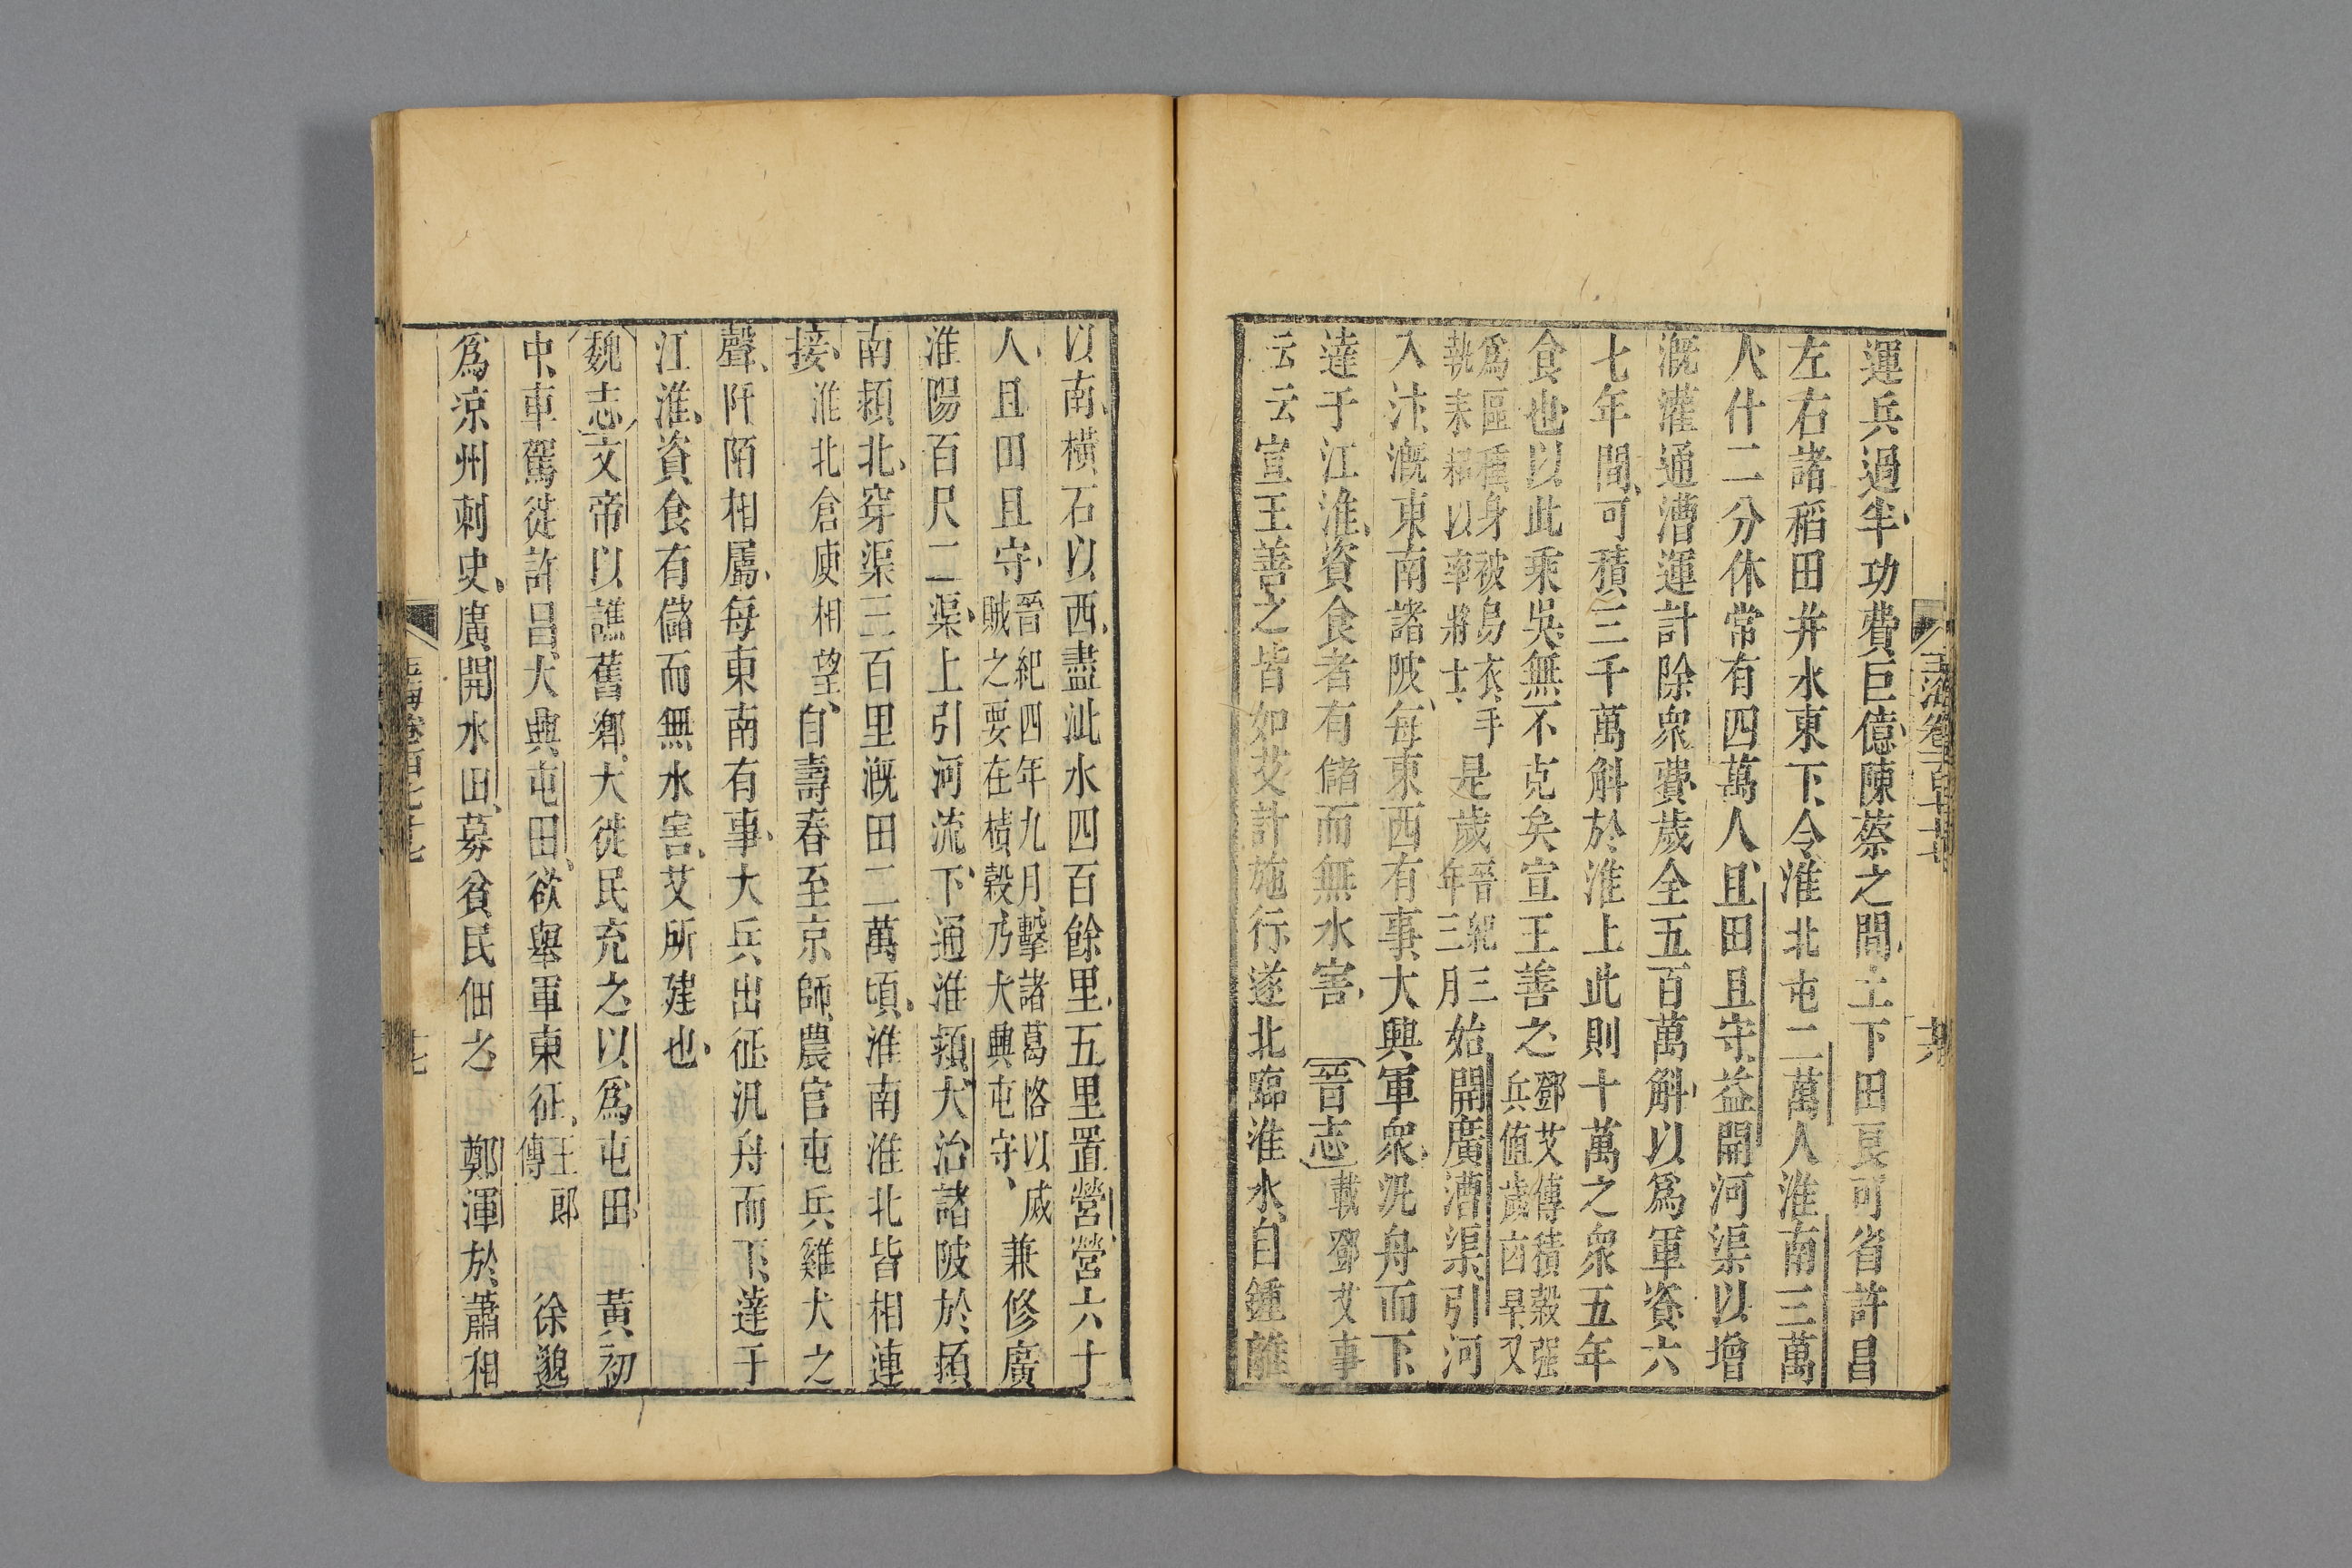 運兵過半功費巨億陳蔡之間土下田良可省許昌
左右諸稻田并水東下令淮北屯二萬人淮南三萬
人什二分休常有四萬人且田且守益開河渠以增
溉灌通漕運計除衆費歲全五百萬斛以爲軍資六
七年間可積三千萬斛於淮上此則十萬之衆五年
食也以此乘吳無不克矣宣王善之鄧艾傳積穀强兵值歲凶旱又
爲區種身被烏衣手執耒耜以率將士是歲晉紀三年三月始開廣漕渠引河
入汴溉東南諸陂每東西有事大興軍衆汎舟而下
達于江淮資食者有儲而無水害 晉志載鄧艾事
云云宣王善之皆如艾計施行遂北臨淮水自鍾離
以南橫石以西盡沘水四百餘里五里置營營六十
人且田且守晉紀四年九月擊諸葛恪以爲賊之要在積穀乃大興屯守兼修廣
淮陽百尺二渠上引河流下通淮潁大治諸陂於潁
南潁北穿渠三百里溉田二萬頃淮南淮北皆相連
接淮北倉庾相望自壽春至京師農官屯兵雞犬之
聲阡陌相屬每東南有事大兵出征汎舟而下達于
江淮資食有儲而無水害艾所建也
魏志文帝以譙舊鄉大徙民充之以爲屯田 黃初
中車駕徙許昌大興屯田欲舉軍東征王郎傳 徐邈
爲凉州刺史廣開水田募貧民佃之 鄭渾於蕭相
玉海卷百七十七
十七